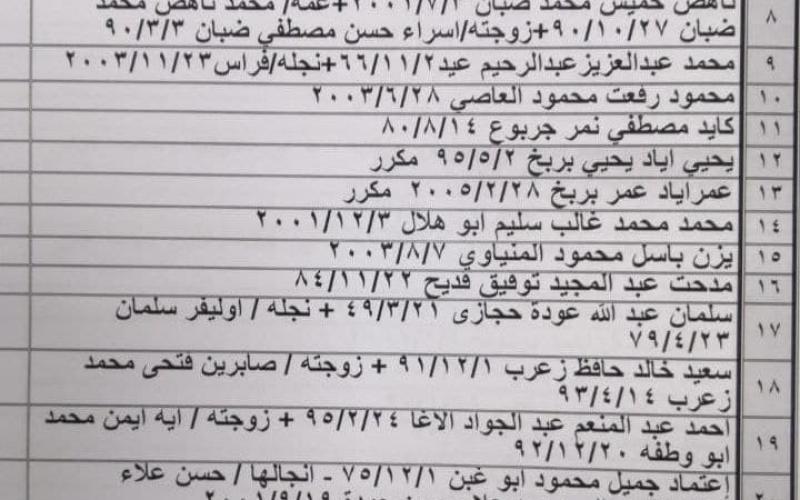 ناهض خميس محمد ضبان ٢٠٠١/٧/١+عمه/ محمد ناهض محمد
٨ ضبان ٩٠/١٠/٢٧+زوجته/اسراء حسن مصطفي ضبان ٩٠/٣/٣
٩ محمد عبدالعزيز عبدالرحيم عيد ٦٦/١١/٢+نجله/فراس ٢٠٠٣/١١/٢٣
١٠ محمود رفعت محمود العاصي ٢٠٠٣/٦/٢٨
١١ كايد مصطفي نمر جربوع ٨٠/٨/١٤
١٢ يحيي اياد يحيي بربخ ٩٥/٥/٢ مكرر
١٣ عمر اياد عمر بربخ ٢٠٠٥/٢/٢٨ مكرر
١٤ محمد محمد غالب سليم ابو هلال ٢٠٠١/١٢/٣
١٥ يزن باسل محمود المنياوي ٢٠٠٣/٨/٧
١٦ مدحت عبد المجيد توفيق قديح ٨٤/١١/٢٢
١٧ سلمان عبد الله عودة حجازى ٤٩/٣/٢١ + نجله / اوليفر سلمان
٧٩/٤/٢٣
١٨ سعيد خالد حافظ زعرب ٩١/١٢/١ + زوجته / صابرين فتحى محمد
زعرب ٩٣/٤/١٤
١٩ احمد عبد المنعم عبد الجواد الاغا ٩٥/٢/٢٤ + زوجته / ايه ايمن محمد
ابو وطفه ٩٢/١٢/٢٠
اعتماد جميل محمود ابو غبن ٧٥/١٢/١ - انجالها / حسن علاء